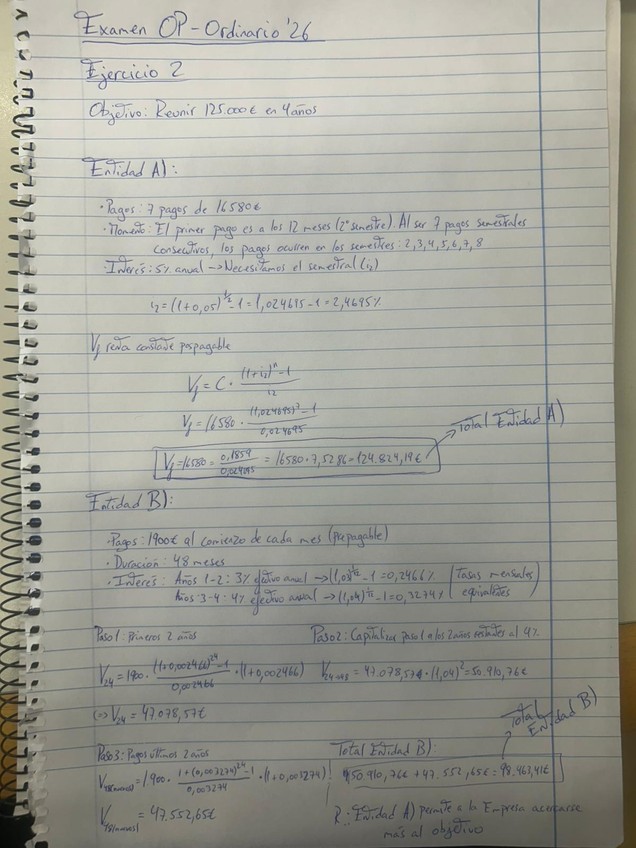 Examen OP - Ordinario '26
Ejercicio 2
Objetivo: Reunir 125.000€ en 4 años
Entidad A):
· Pagos: 7 pagos de 16580€
· Momento: El primer pago es a los 12 meses (2º semestre). Al ser 7 pagos semestrales
consecutivos, los pagos ocurren en los semestres: 2,3,4,5,6,7,8
· Interés: 5% anual → Necesitamos el semestral (i₂)
i₂ = (1+0,05)^1/2 - 1 = 1,024695 - 1 = 2,4695%
Vf renta constante pospagable
Vf = C · ((1+i₂)^n - 1)/i₂
Vf = 16580 · ((1,024695)^7 - 1)/0,024695
Vf = 16580 = 0,1859/0,024695 = 16580 · 7,5286 = 124.824,19€
Total Entidad A)
Entidad B):
· Pagos: 1900€ al comienzo de cada mes (prepagable)
· Duración: 48 meses
· Interés: Años 1-2: 3% efectivo anual → (1,03)^1/12 - 1 = 0,2466% (Tasas mensuales
Años 3-4: 4% efectivo anual → (1,04)^1/12 - 1 = 0,3274% equivalentes)
Paso 1: Primeros 2 años
V24 = 1900 · ((1+0,002466)^24 - 1)/0,002466 · (1+0,002466)
(=) V24 = 47.078,57€
Paso 2: Capitalizar paso 1 a los 2 años restantes al 4%
= 47.078,57€ · (1,04)^2 = 50.910,76€
Total Entidad B)
Paso 3: Pagos últimos 2 años
= 1.900 · (1+(0,003274)^24 - 1)/0,003274 · (1+0,003274)
= 47.552,65€
Total Entidad B):
50.910,76€ + 47.552,65€ = 98.463,41€
R.: Entidad A) permite a la Empresa acercarse
más al objetivo